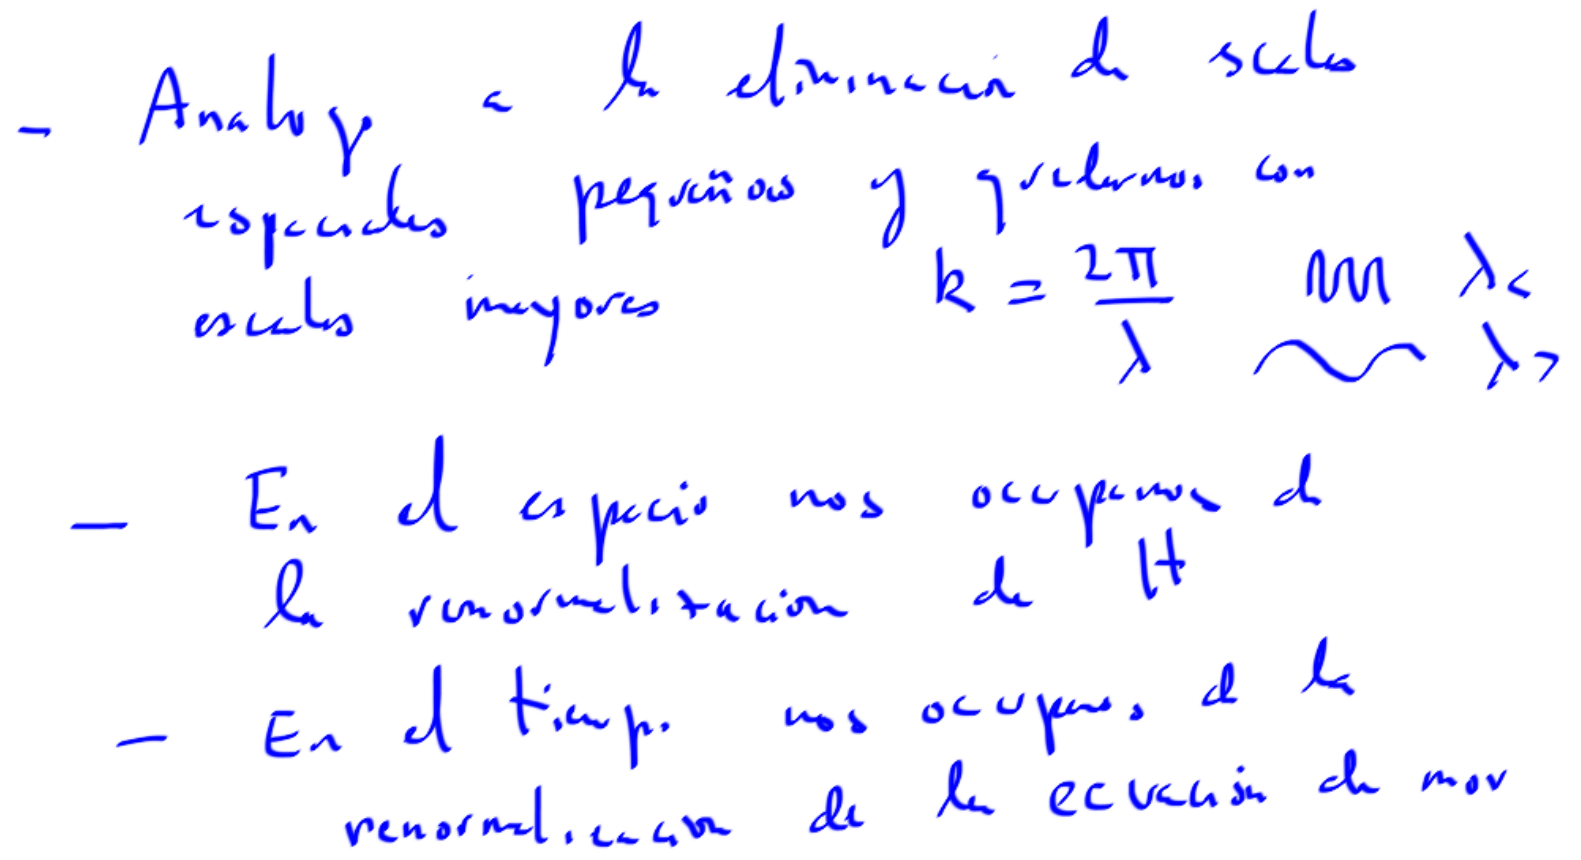 - Analogo a la eliminación de scalas
espaciales pequeños y quedarnos con
escalas mayores k = 2π/λ λ<
λ>
- En el espacio nos ocupamos de
la renormalización de H
- En el tiempo nos ocupamos de la
renormalización de la ecuación de mov